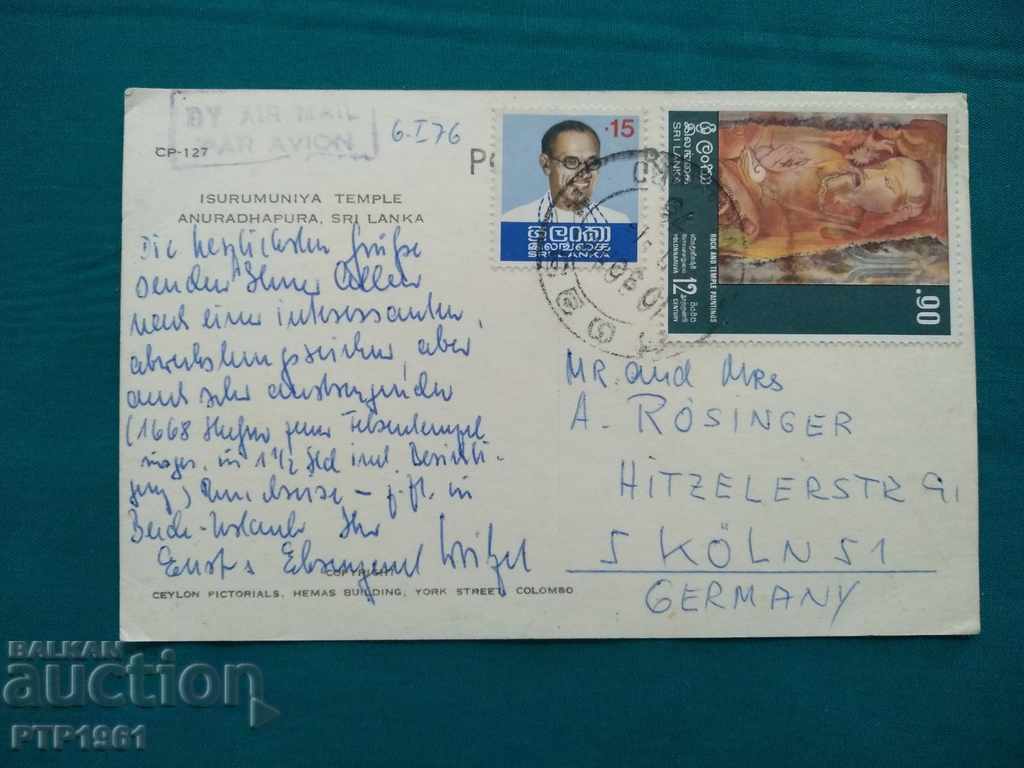 BY AIR MAIL
PAR AVION
6.I 76
CP-127
ISURUMUNIYA TEMPLE
ANURADHAPURA, SRI LANKA
Die herzlichsten Grüße
senden Ihnen
nach einer interessanten,
abwechslungsreichen, aber
auch sehr anstrengenden
(1668 Stufen zum Felsentempel
in 1½ Std incl. Besichti-
gung) Rundreise – z. Zt. in
Bade-Urlaub Ihr
Ernst &
COPYRIGHT
CEYLON PICTORIALS, HEMAS BUILDING, YORK STREET, COLOMBO
.15
ශ්‍රී ලංකා
இலங்கை
SRI LANKA
ශ්‍රී ලංකා
இலங்கை
SRI LANKA
ROCK AND TEMPLE PAINTINGS
POLONNARUVA
12
CENTURY
.90
MR. and MRS
A. RÖSINGER
HITZELERSTR 91
5 KÖLN 51
GERMANY
BALKAN
auction
PTP1961